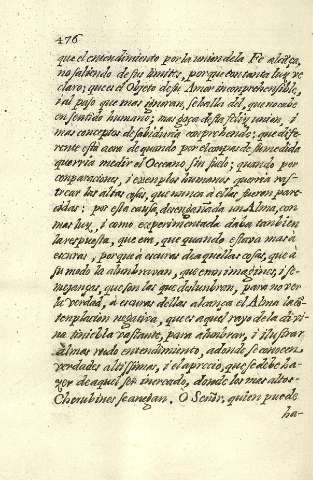 476
que el entendimiento por la union de la Fe alcāça,
no saliendo de sus limites, porque con tanta luz ve
claro, que es el Objeto de su Amor incomprehensible,
i al paso que mas ignoran, se halla del, que no cabe
en sentido humano; mas goça de esta feliz union, i
mas conceptos de sabiduria comprehende; que dife-
rente està aora de quando por el compas de su medida
queria medir el Oceano sin suelo; quando por
comparaciones, i exemplos humanos queria ras-
trear las altas cosas, que nunca a ellas fueron pare-
cidas: por esta causa, desengañada un Alma, con
mas luz, i como experimentada daba tambien
la respuesta, que era, que quando estava mas a
escuras, porque à escuras de aquellas cosas, que à
su modo la alumbravan, que eran imagines, i se-
mejanças, que son las que deslumbran, para no ver
la verdad, à escuras dellas alcança el Alma la cō-
templacion negativa, que es aquel rayo de la divi-
na tiniebla bastante, para alumbrar, i ilustrar
al mas rudo entendimiento, adonde se conocen
verdades altissimas, i el aprecio, que se debe ha-
zer de aquel ser increado, donde los mas altos
Cherubines se anegan. O Señor, quien puede
ha-